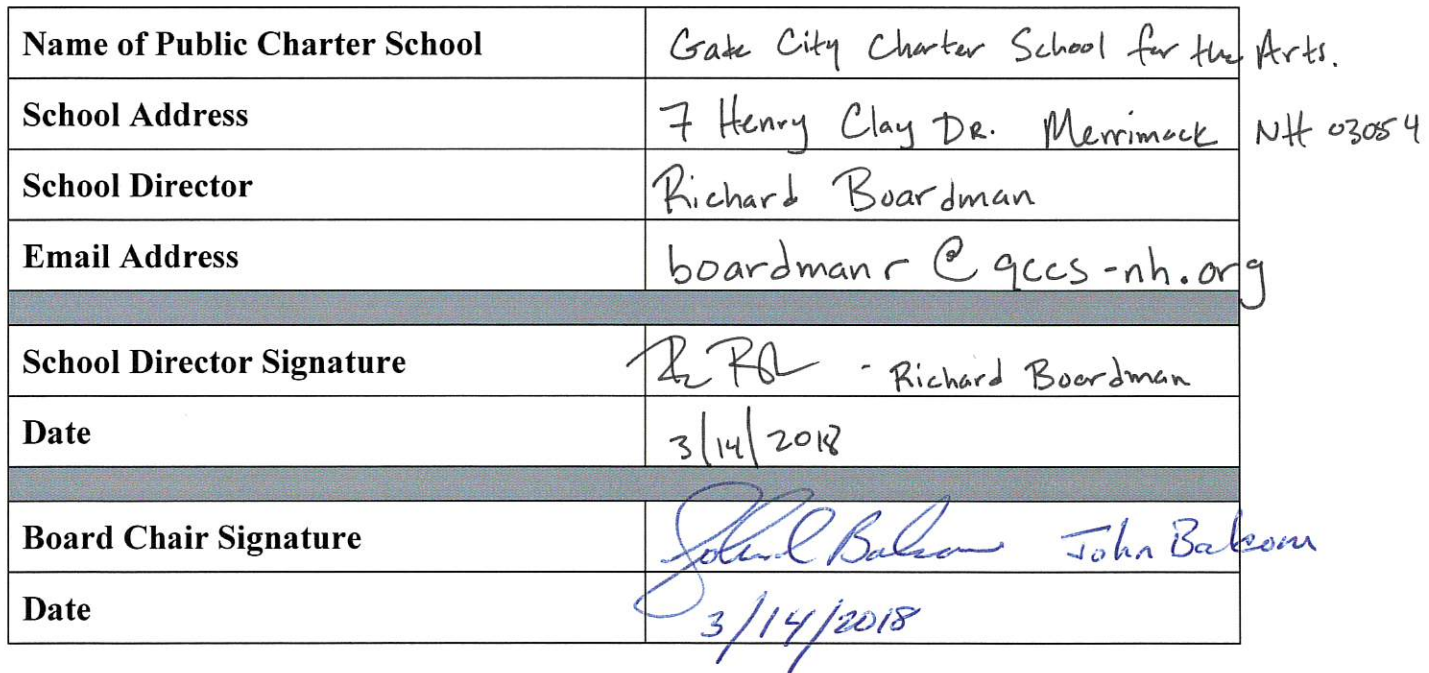 Name of Public Charter School Gate City Charter School for the Arts.
School Address 7 Henry Clay DR. Merrimack NH 03054
School Director Richard Boardman
Email Address boardmanr@gccs-nh.org
School Director Signature - Richard Boardman
Date 3/14/2018
Board Chair Signature John Balcom
Date 3/14/2018